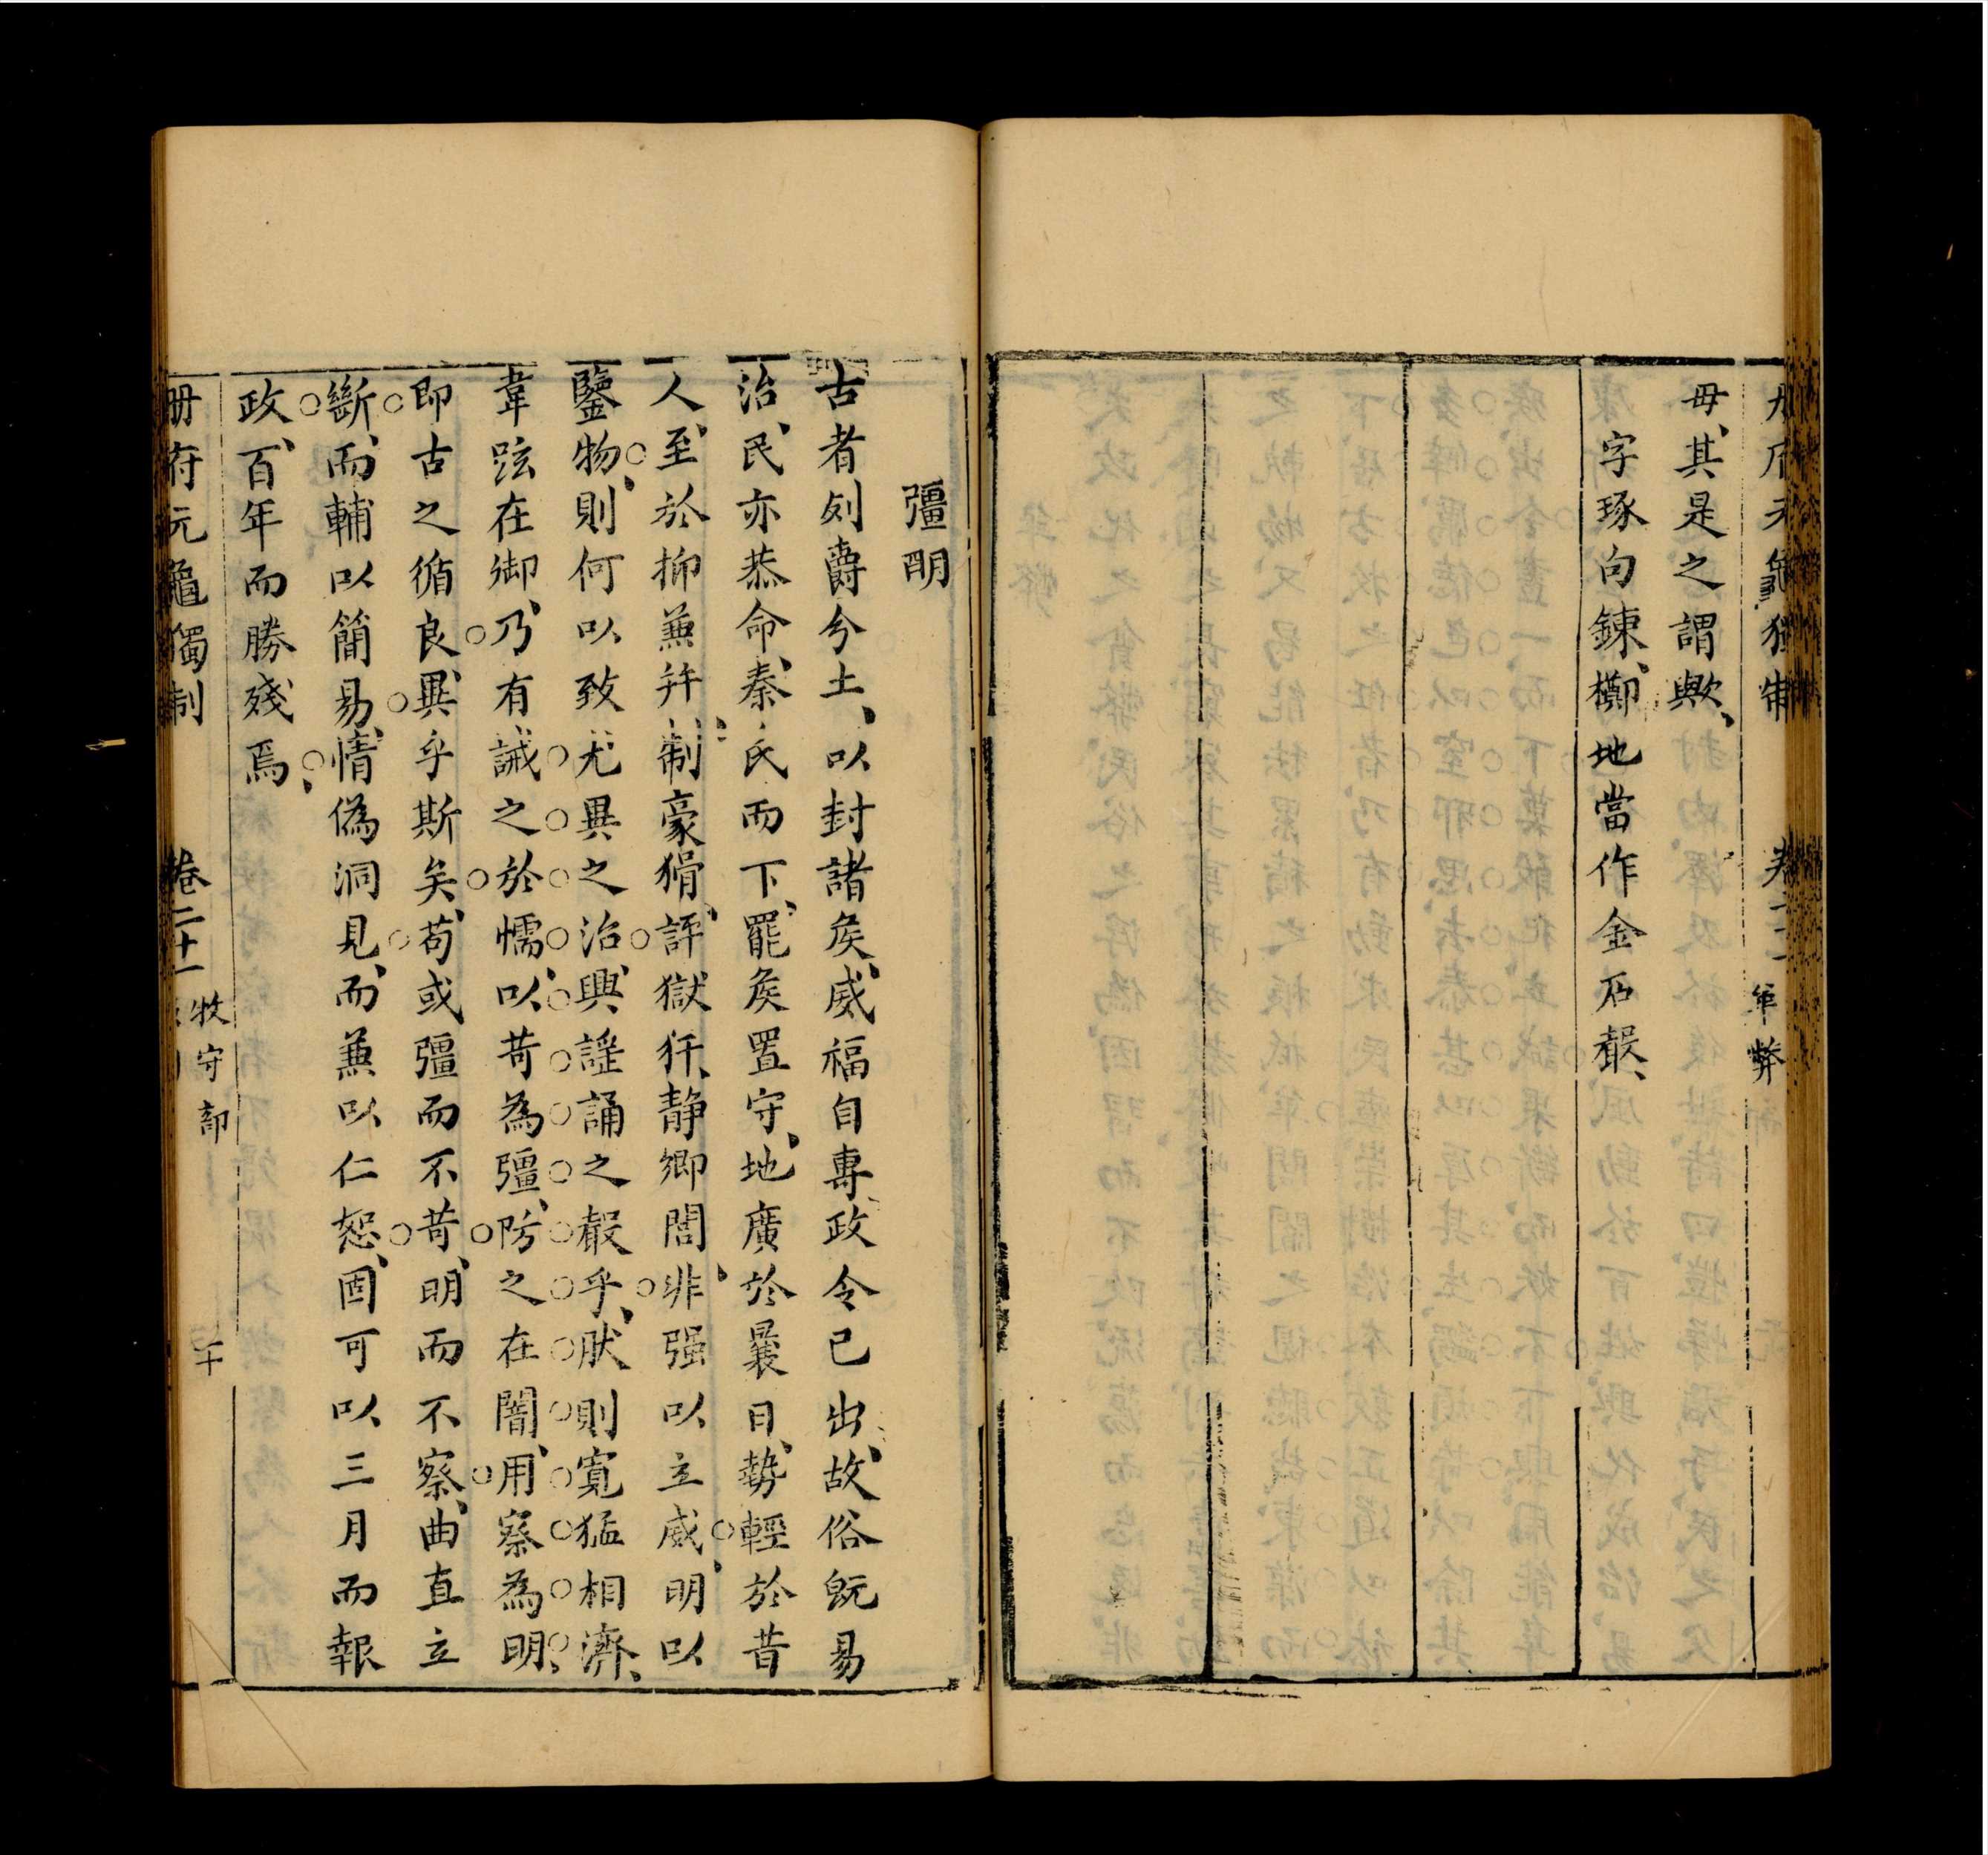 毋、其是之謂歟、
字琢句鍊、擲地當作金石聲、
革弊
彊明
古者列爵分土、以封諸侯、威福自專、政令已出、故俗旣易
治、民亦恭命、秦氏而下、罷侯置守、地廣於曩日、勢輕於昔
人、至於抑兼幷、制豪猾、評獄犴、靜鄉閭、非强以立威、明以
鑒物、則何以致尤異之治、興謠誦之聲乎、肰則寬猛相濟、
韋弦在御、乃有誡之於懦、以苛為彊、防之在闇、用察為明、
即古之循良、異乎斯矣、苟或彊而不苛、明而不察、曲直立
斷、而輔以簡易、情偽洞見、而兼以仁恕、固可以三月而報
政、百年而勝殘焉、
册府元龜獨制 卷二十一 牧守部 二十